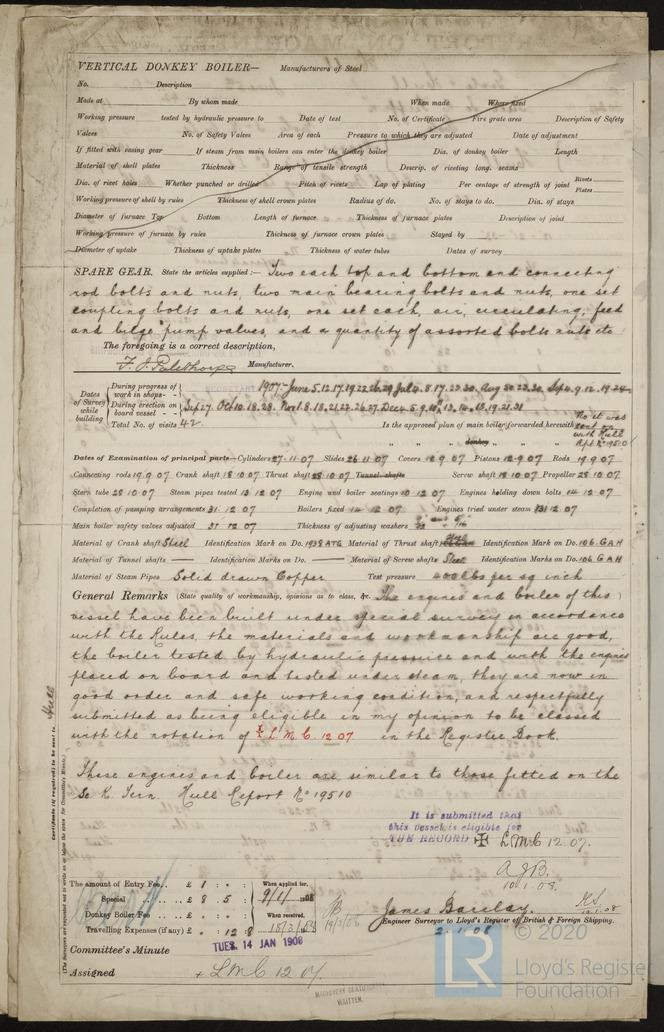 VERTICAL DONKEY BOILER— Manufacturers of Steel
No. Description
Made at By whom made When made Where fixed
Working pressure tested by hydraulic pressure to Date of test No. of Certificate Fire grate area Description of Safety
Valves No. of Safety Valves Area of each Pressure to which they are adjusted Date of adjustment
If fitted with easing gear If steam from main boilers can enter the donkey boiler Dia. of donkey boiler Length
Material of shell plates Thickness Range of tensile strength Descrip. of riveting long. seams
Dia. of rivet holes Whether punched or drilled Pitch of rivets Lap of plating Per centage of strength of joint Rivets Plates
Working pressure of shell by rules Thickness of shell crown plates Radius of do. No. of stays to do. Dia. of stays
Diameter of furnace Top Bottom Length of furnace Thickness of furnace plates Description of joint
Working pressure of furnace by rules Thickness of furnace crown plates Stayed by
Diameter of uptake Thickness of uptake plates Thickness of water tubes Dates of survey
SPARE GEAR. State the articles supplied:— Two each top and bottom end connecting
rod bolts and nuts, two main bearing bolts and nuts, one set
coupling bolts and nuts, one set each, air, circulating, feed
and bilge pump valves, and a quantity of assorted bolts nuts etc
The foregoing is a correct description,
Manufacturer.
Dates of Survey while building
During progress of work in shops - - 1907:- June 5.12.17.19.22.26.29 July 4.8.17.23.30. Aug 20.23.30. Sep 4.9.12.19.24
During erection on board vessel - - Sep 27. Oct 10.18.28. Nov 1.8.13.21.22.26.27. Dec 4.5.9.10.13.14.18.19.21.31
Total No. of visits 42. Is the approved plan of main boiler forwarded herewith No it was sent on with Hull Rpt No 19510
" " " donkey " " "
Dates of Examination of principal parts—Cylinders 27-11-07 Slides 26-11-07 Covers 12-9-07 Pistons 12-9-07 Rods 19-9-07
Connecting rods 19-9-07 Crank shaft 18-10-07 Thrust shaft 28-10-07 Tunnel shafts Screw shaft 18-10-07 Propeller 28-10-07
Stern tube 28-10-07 Steam pipes tested 13-12-07 Engine and boiler seatings 10-12-07 Engines holding down bolts 14-12-07
Completion of pumping arrangements 31-12-07 Boilers fixed 14-12-07 Engines tried under steam 31-12-07
Main boiler safety valves adjusted 31-12-07 Thickness of adjusting washers
Material of Crank shaft Steel Identification Mark on Do. 1938 ATG Material of Thrust shaft Identification Mark on Do. 106 GAH
Material of Tunnel shafts — Identification Marks on Do. — Material of Screw shafts Steel Identification Marks on Do. 106 GAH
Material of Steam Pipes Solid drawn Copper Test pressure 400 lbs per sq inch
General Remarks (State quality of workmanship, opinions as to class, &c. The engines and boiler of this
vessel have been built under special survey in accordance
with the Rules, the materials and workmanship are good,
the boiler tested by hydraulic pressure and with the engines
placed on board and tested under steam, they are now in
good order and safe working condition, and respectfully
submitted as being eligible in my opinion to be classed
with the notation of + L.M.C. 12.07 in the Register Book.
These engines and boiler are similar to those fitted on the
Se K. Tern. Hull Report No 19510
It is submitted that
this vessel is eligible for
THE RECORD + LMC 12.07.
A.J.B.
10.1.08.
Certificate (if required) to be sent to Hull
(The Surveyors are requested not to write on or below the space for Committee's Minute.)
The amount of Entry Fee.. £ 1 : " : When applied for,
Special .. £ 8 : 5 : 9/1/1908
Donkey Boiler Fee .. £ : : When received,
Travelling Expenses (if any) £ " : 12 : 8 18/3/08 19/3/08
James Barclay
2.1.08
Engineer Surveyor to Lloyd's Register of British & Foreign Shipping.
Committee's Minute TUES. 14 JAN 1908
Assigned + LMC 12.07
MACHINERY CERTIFICATE
WRITTEN.
© 2020
LR
Lloyd's Register
Foundation